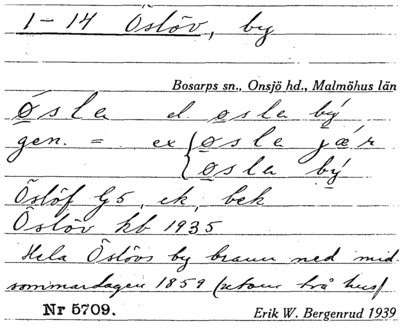 1-14 Östöv, by
Bosarps sn., Onsjö hd., Malmöhus län
øsla el. øsla bý
gen. = ex { øsla jæ r
øsla bý
Östöf G5, ek, bek
Östöv kb 1935
Hela Östövs by brann ned mid-
sommardagen 1859 (utom två hus)
Nr 5709. Erik W. Bergenrud 1939